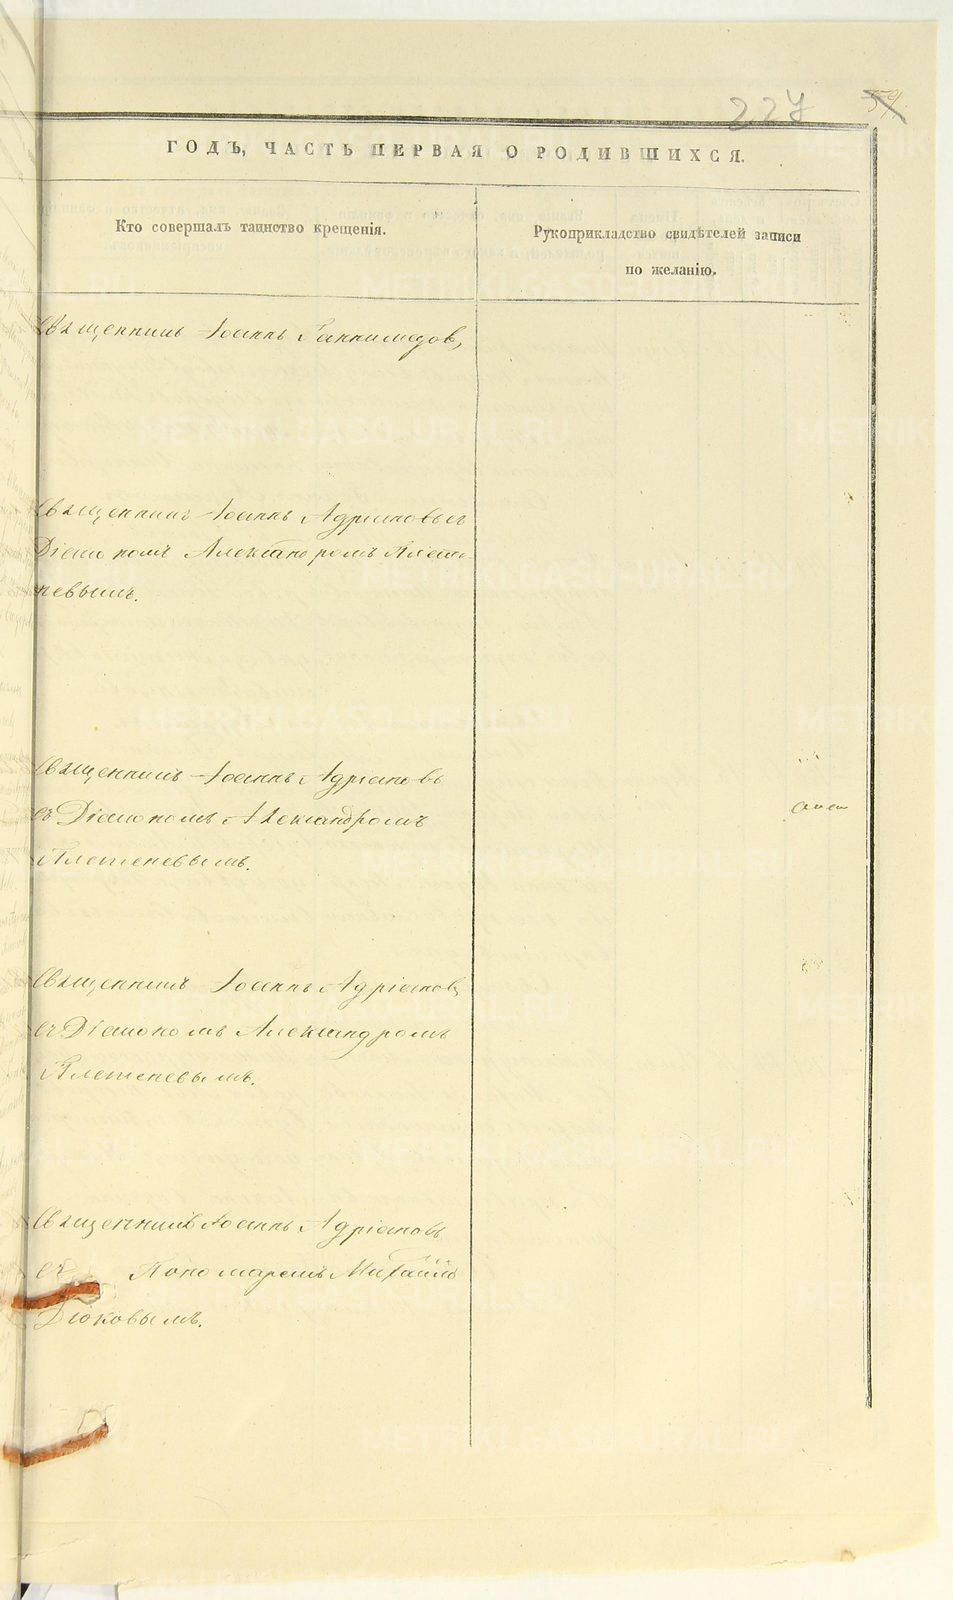 227 59
ГОДЪ, ЧАСТЬ ПЕРВАЯ О РОДИВШИХСЯ.
Кто совершалъ таинство крещенія.
Рукоприкладство свидѣтелей записи
по желанію.
Священникъ Іоаннъ Ганнимедов,
Священникъ Іоаннъ Адріановъ съ
Діакономъ Александромъ Плеше-
невымъ.
Священникъ Іоаннъ Адріановъ
съ Діакономъ Александромъ
Плешеневымъ.
Священникъ Іоаннъ Адріановъ
съ Діакономъ Александромъ
Плешеневымъ.
Священникъ Іоаннъ Адріановъ
съ Пономаремъ Михаиломъ
METRIKI.GASO-URAL.RU